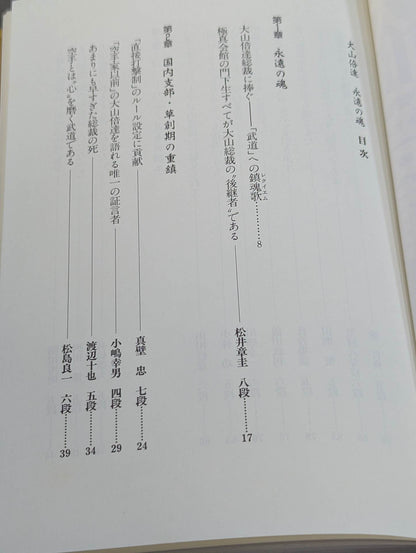 大山倍達 永遠の魂 目次
第1章 永遠の魂
大山倍達総裁に捧ぐ――「武道」への鎮魂歌レクイエム………8
極真会館の門下生すべてが大山総裁の“後継者”である――松井章圭 八段……17
第2章 国内支部・草創期の重鎮
「直接打撃制」のルール設定に貢献――真壁 忠 七段……24
「空手家以前」の大山倍達を語れる唯一の証言者――小嶋幸男 四段……29
あまりにも早すぎた総裁の死――渡辺十也 五段……34
空手とは“心”を磨く武道である――松島良一 六段……39